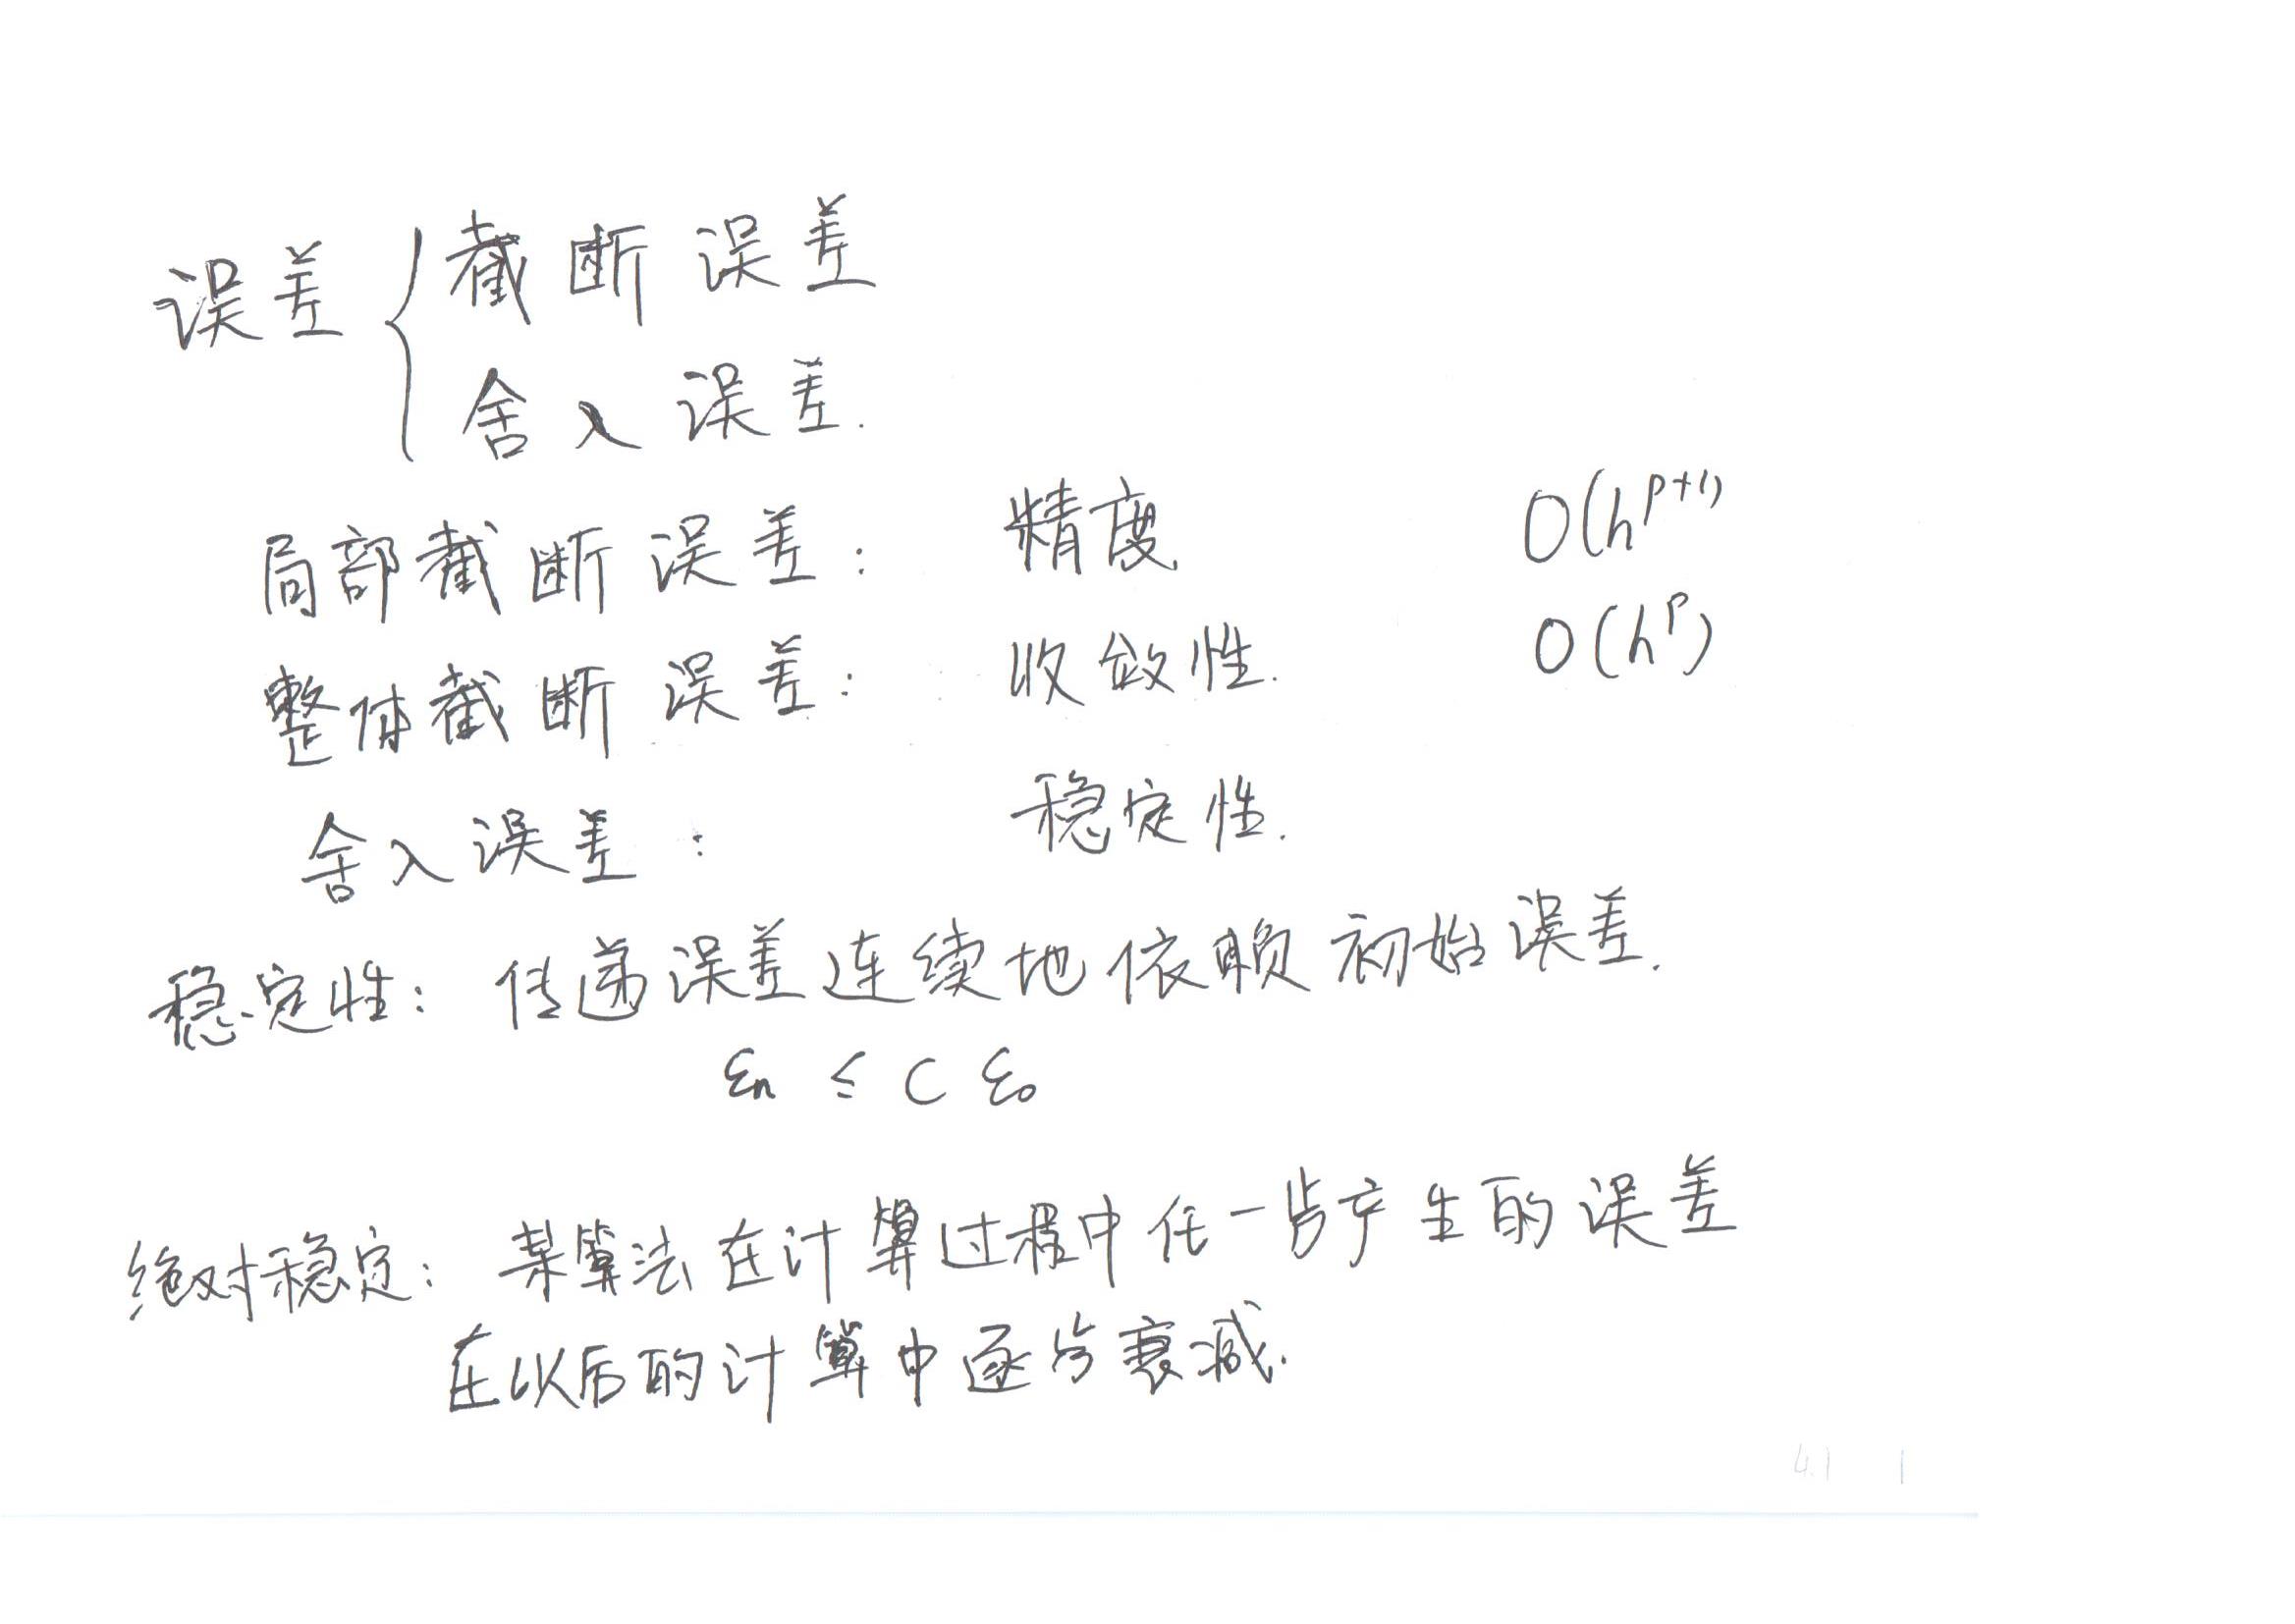 误差 { 截断误差
舍入误差.
局部截断误差: 精度 O(h^{p+1})
整体截断误差: 收敛性. O(h^p)
舍入误差: 稳定性.
稳定性: 传递误差连续地依赖初始误差.
εn ≤ C ε0
绝对稳定: 某算法在计算过程中任一步产生的误差
在以后的计算中逐步衰减.
4.1 1